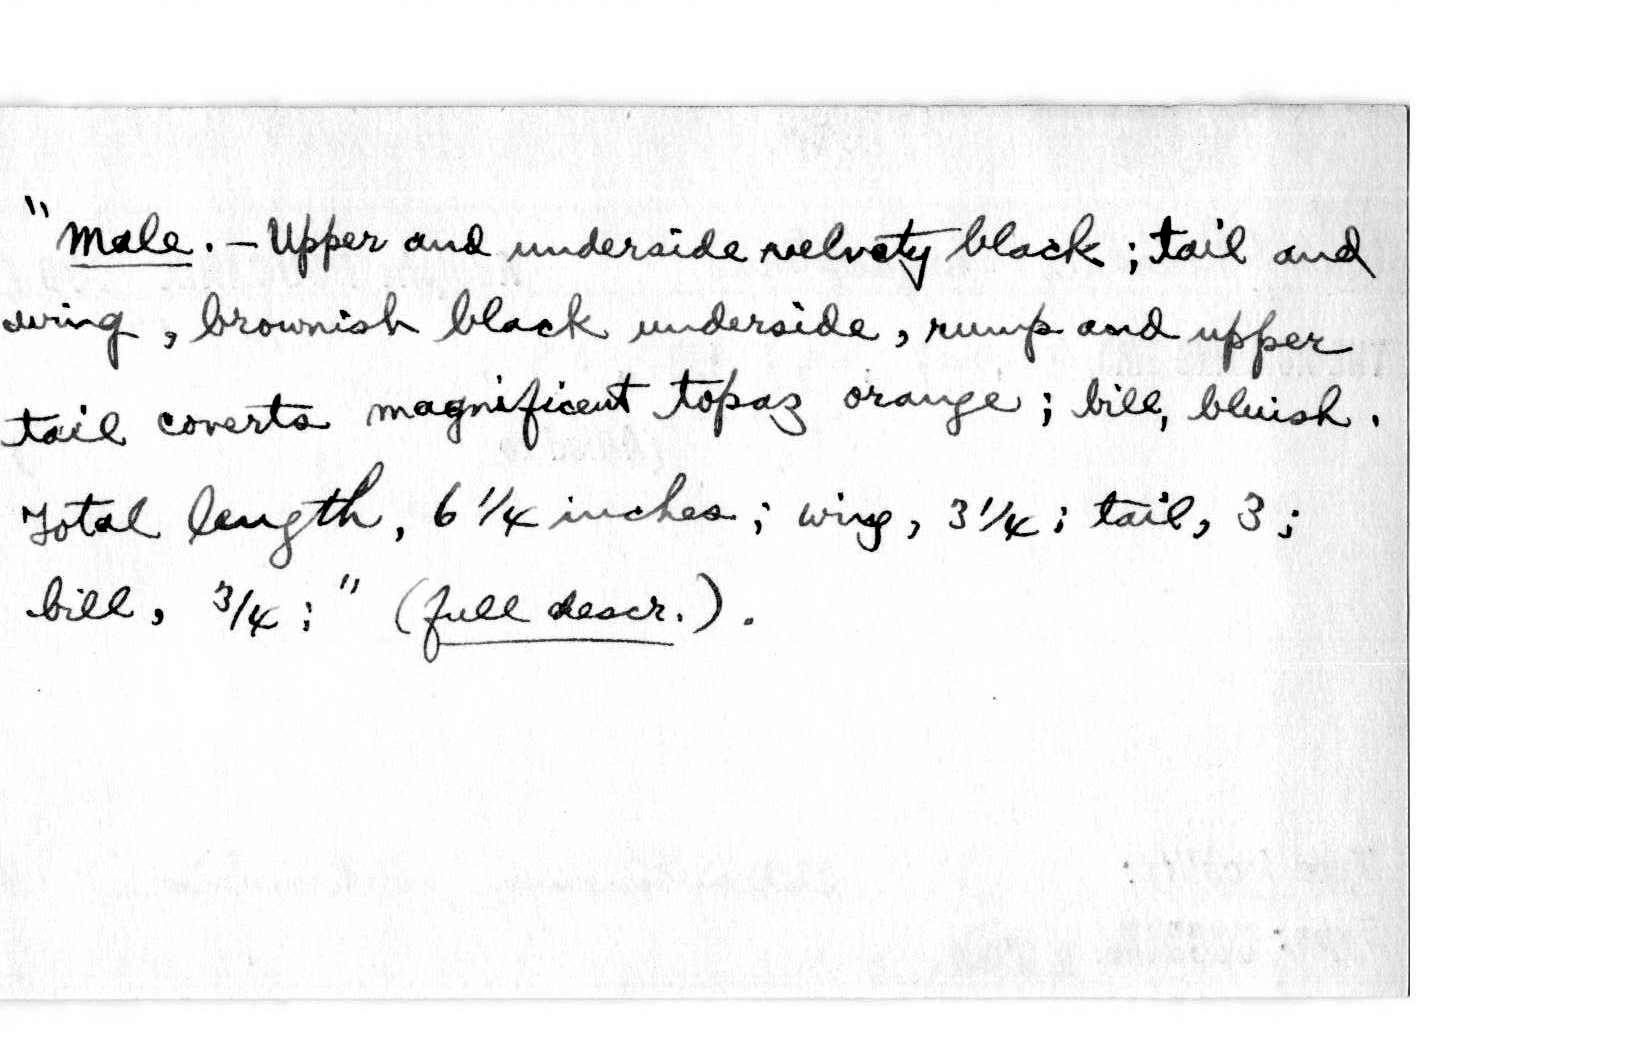 "Male. – Upper and underside velvety black; tail and
wing, brownish black underside, rump and upper
tail coverts magnificent topaz orange; bill, bluish.
Total length, 6 1/4 inches; wing, 3 1/4; tail, 3;
bill, 3/4;" (full descr.).